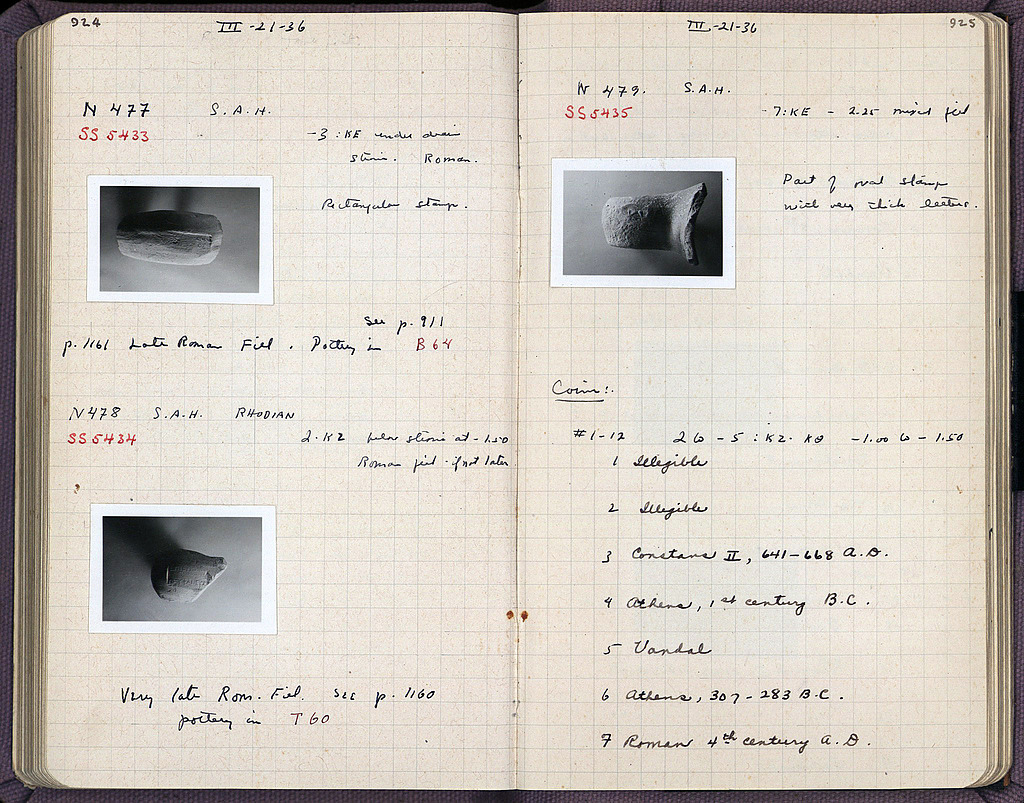 924
III -21-36
N 477 S.A.H.
SS 5433
-3 : KE under drain
stone. Roman.
Rectangular stamp.
See p. 911
p. 1161 Late Roman Fill. Pottery in B 64
N 478 S.A.H. RHODIAN
SS 5434
2. KZ below stones at -1.50
Roman fill - if not later
Very late Rom. Fill. See p. 1160
pottery in T 60
925
III, -21-36
N 479. S.A.H.
SS 5435
-7:KE - 2.25 mixed fill
Part of oval stamp
with very thick letters.
Coins:
#1-12 26 - 5 : KZ. KΘ -1.00 to -1.50
1 Illegible
2 Illegible
3 Constans II, 641-668 A.D.
4 Athens, 1st century B.C.
5 Vandal
6 Athens, 307-283 B.C.
7 Roman 4th century A.D.